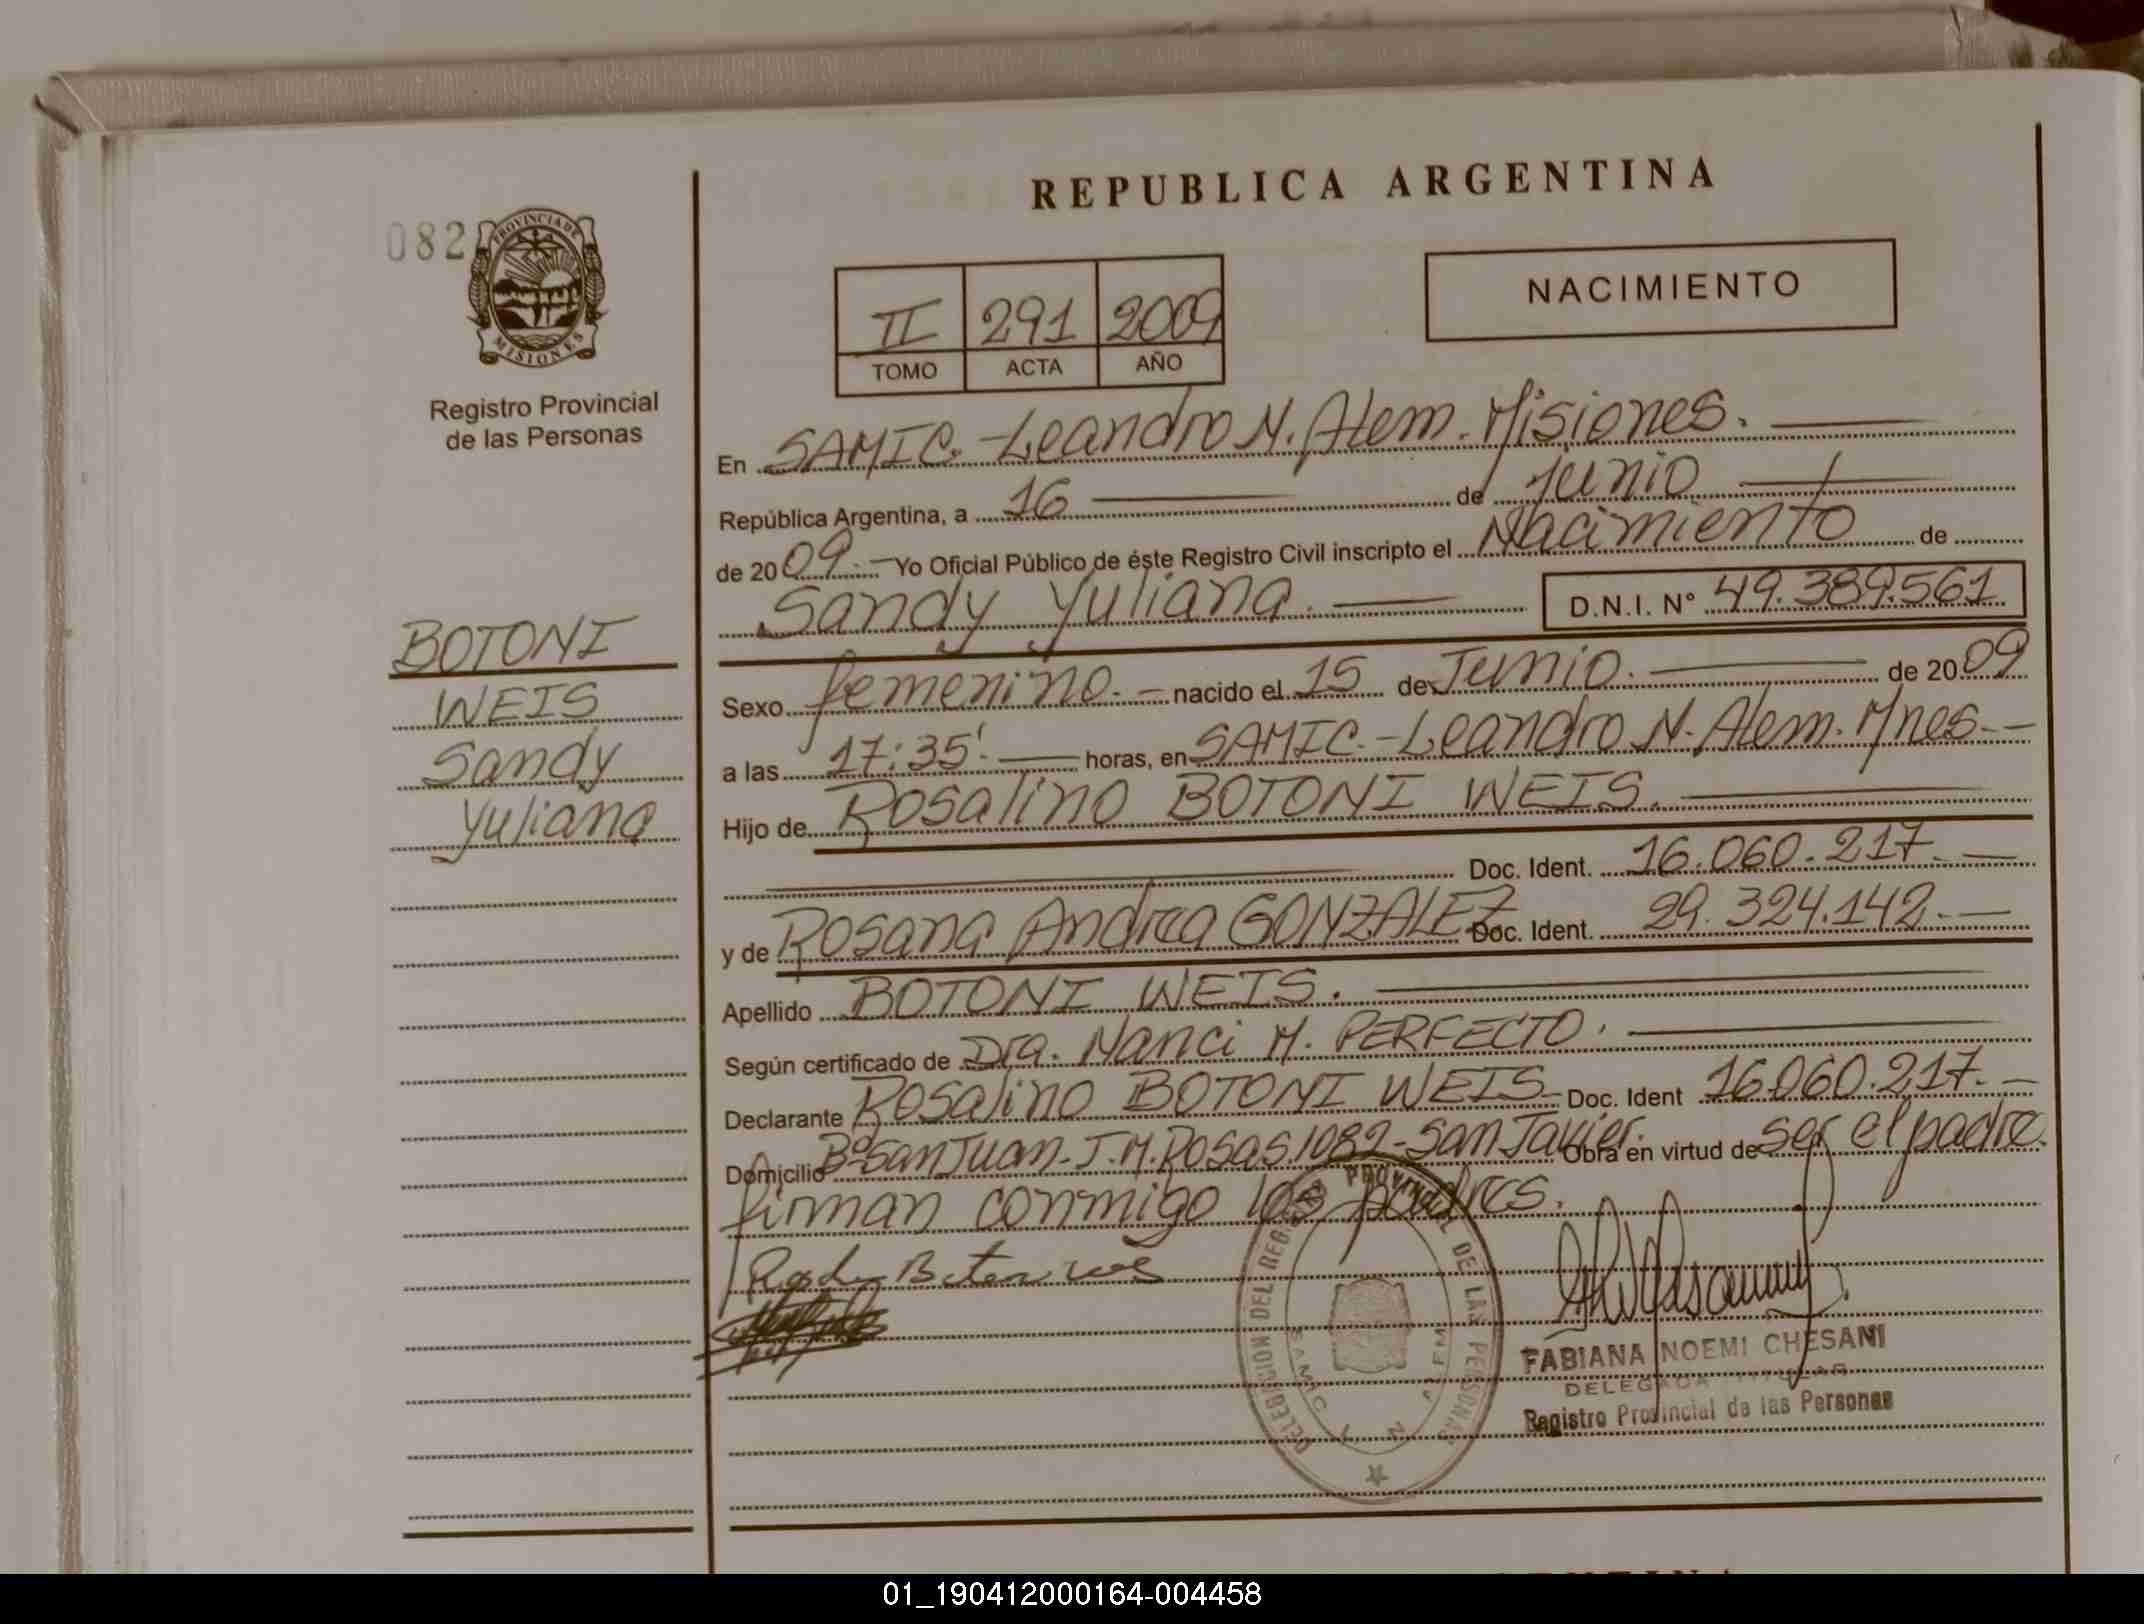 REPUBLICA ARGENTINA
082
PROVINCIA DE
MISIONES
Registro Provincial
de las Personas
II 291 2009
TOMO ACTA AÑO
NACIMIENTO
BOTONI
WEIS
Sandy
Yuliana
En SAMIC.-Leandro N. Alem. Misiones.
República Argentina, a 16 de Junio
de 2009.- Yo Oficial Público de éste Registro Civil inscripto el Nacimiento de
Sandy Yuliana. D.N.I. N° 49.389.561
Sexo femenino.- nacido el 15 de Junio. de 2009
a las 17:35'. horas, en SAMIC.-Leandro N. Alem. Mnes.-
Hijo de Rosalino BOTONI WEIS.
Doc. Ident. 16.060.217.-
y de Rosana Andrea GONZALEZ Doc. Ident. 29.324.142.-
Apellido BOTONI WEIS.
Según certificado de Dra. Nanci M. PERFECTO.
Declarante Rosalino BOTONI WEIS- Doc. Ident 16.060.217.-
Domicilio B° San Juan-J.M. Rosas.1082-San Javier. Obra en virtud de ser el padre.
firman conmigo los padres.
DELEGACION DEL REGISTRO PROVINCIAL DE LAS PERSONAS
SAMIC L N ALEM
FABIANA NOEMI CHESANI
DELEGADA TITULAR
Registro Provincial de las Personas
01_190412000164-004458